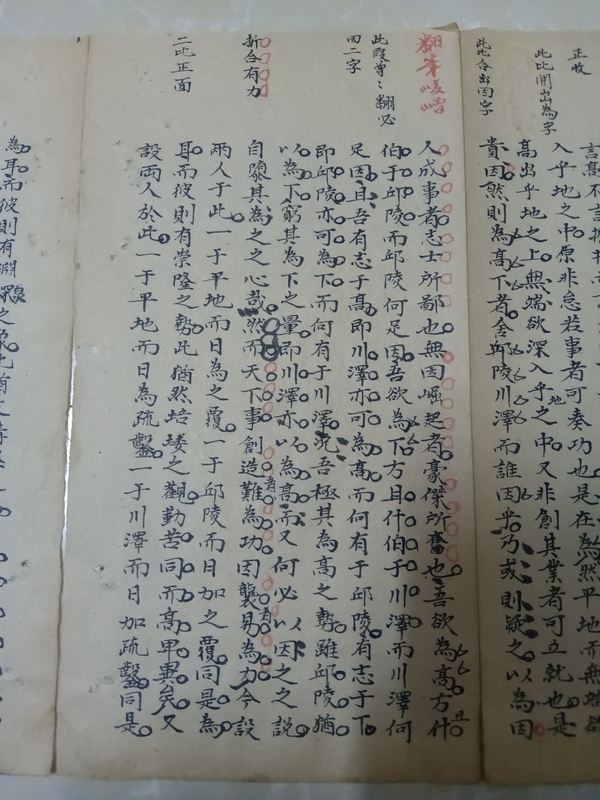 正收
此比開出為字
此比合出因字
入乎地之中原非怠若事者可奏功也是在為然平地而無端欲
高出乎地之上無端欲深入乎地之中又非創其業者可立就也是
貴因然則為高下者舍邱陵川澤而誰因乎乃或則疑之以為因
此段曾翻必
因二字
折合有力
二比正面
人成事者志士所鄙也無因崛起者豪傑所奮也吾欲為高方且什
伯于邱陵而邱陵何足因吾欲為下方且什伯于川澤而川澤何
足因且吾有志于高即川澤亦可為高而何有于邱陵有志于下
即邱陵亦可為下而何有于川澤況吾極其為高之勢雖邱陵猶
以為下窮其為下之量即川澤亦以為高而又何必以因之之說
自隳其為之之心哉然而天下事創造者難為功因襲者易為力今設
兩人于此一于平地而日為之覆一于邱陵而日加之覆同是為
耳而彼則有崇隆之勢此猶然培塿之觀勤苦同而高卑異矣又
設兩人於此一于平地而日為疏鑿一于川澤而日加疏鑿同是
為耳而彼則有淵